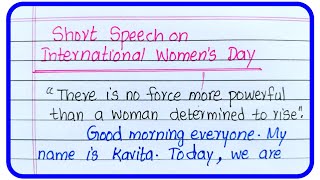 Short Speech on
International Women's Day
"There is no force more powerful
than a woman determined to rise".
Good morning everyone. My
name is Kavita. Today, we are